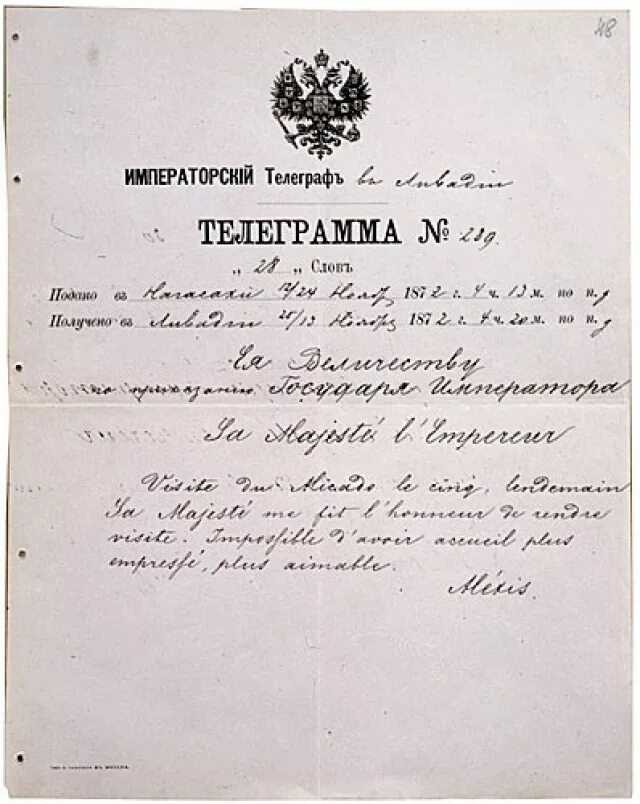 48
ИМПЕРАТОРСКІЙ Телеграфъ въ Ливадіи
ТЕЛЕГРАММА № 289.
„ 28 „ Словъ
Подано въ Нагасаки 12/24 Нояб 1872 г. 4 ч. 13 м. по п. д
Получено въ Ливадіи 25/13 Ноября 1872 г. 4 ч. 20 м. по п. д
Ея Величеству
по приказанію Государя Императора
Sa Majesté l'Empereur
Visite du Micado le cinq, lendemain
Sa Majesté me fit l'honneur de rendre
visite. Impossible d'avoir accueil plus
empressé, plus aimable.
Aléxis.